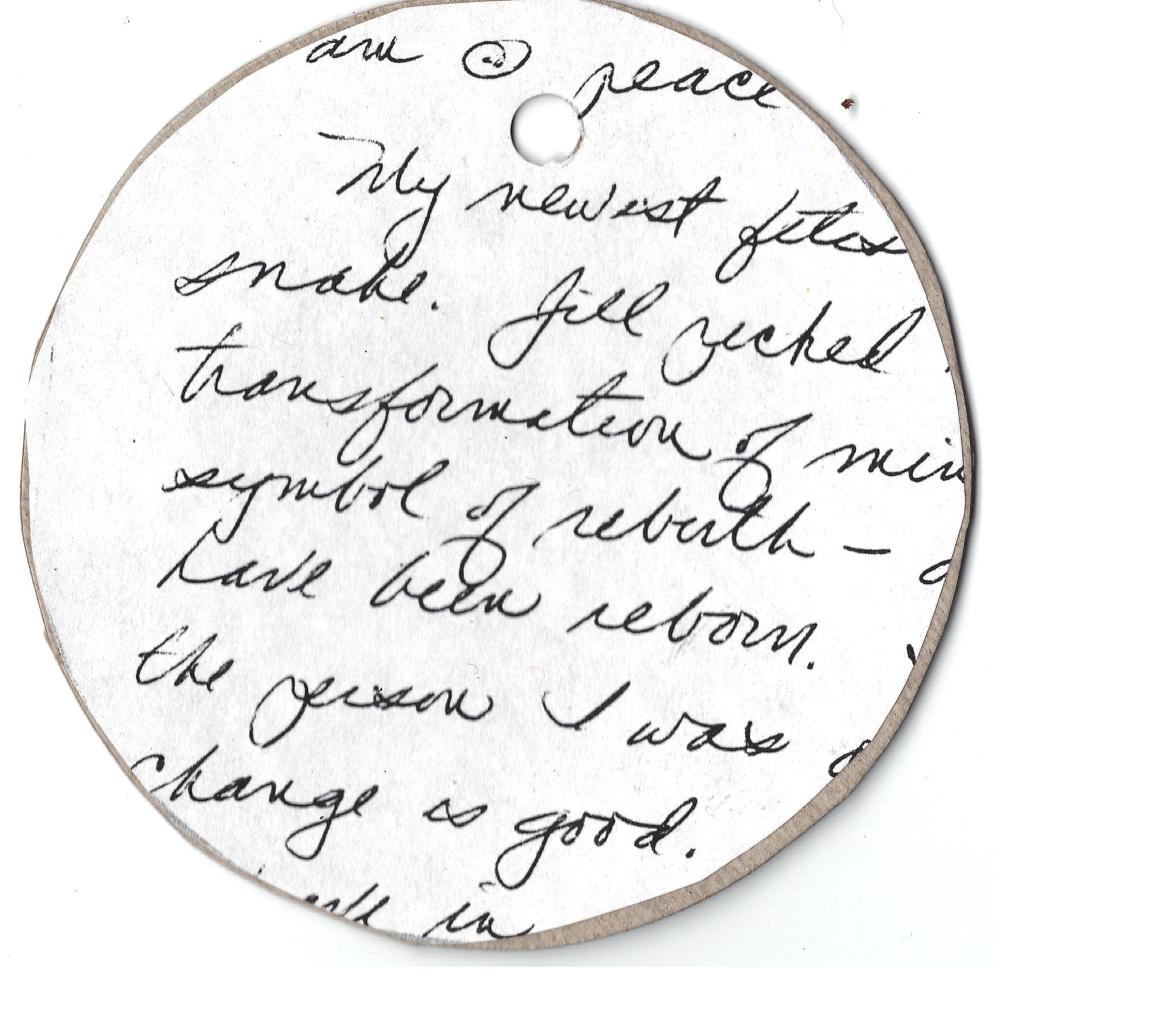 am @ peace
My newest fetis
snake. Jill picked
transformation of min
symbol of rebirth –
have been reborn.
the person I was
change is good.
in